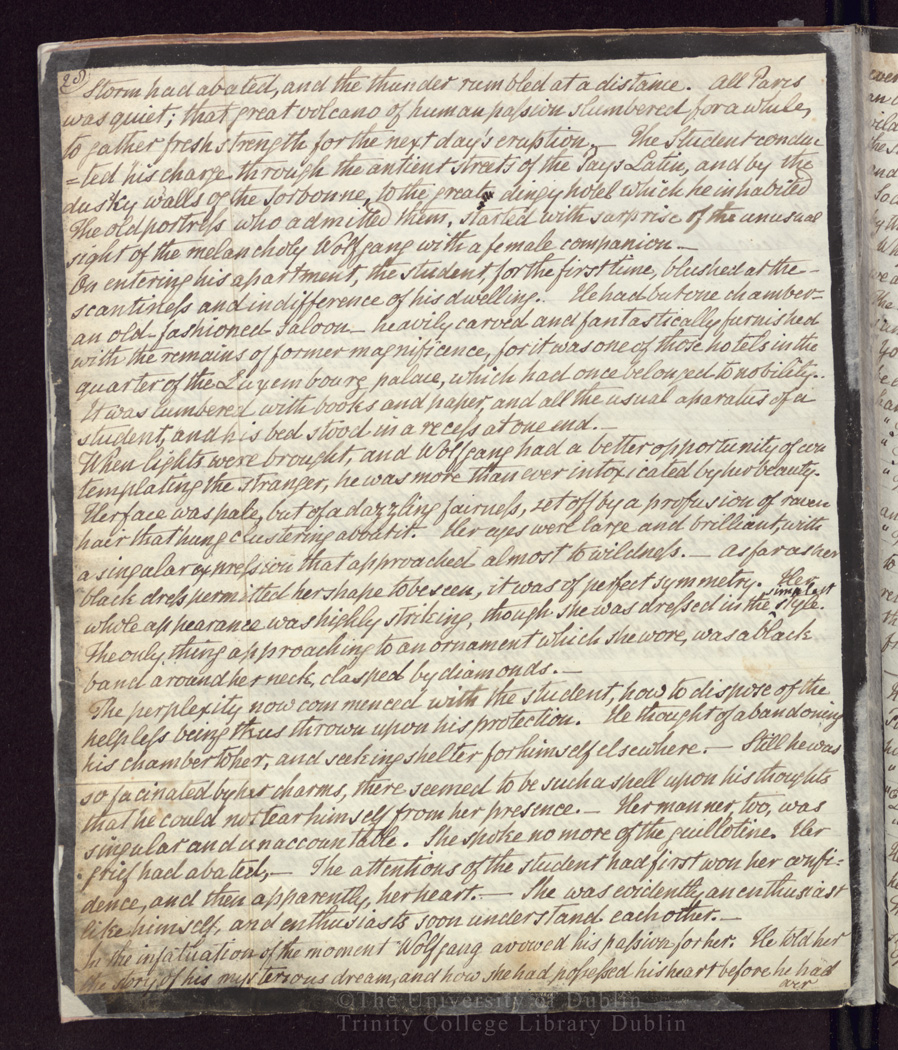 28
Storm had abated, and the thunder rumbled at a distance. All Paris
was quiet; that great volcano of human passion slumbered for a while,
to gather fresh strength for the next day's eruption, The Student conduc
=ted his charge through the antient streets of the Pays Latin, and by the
dusky walls of the Sorbonne, to the great dingy hotel which he inhabited
The old portress who admitted them, started with surprise of the unusual
sight of the melancholy Wolfgang with a female companion —
On entering his apartment, the student, for the first time, blushed at the —
scantiness and indifference of his dwelling. He had but one chamber =
an old-fashioned Saloon — heavily carved and fantastically furnished
with the remains of former magnificence, for it was one of those hotels in the
quarter of the Luxembourg palace, which had once belonged to nobility. -
It was lumbered with books and paper, and all the usual aparatus of a
student, and his bed stood in a recess at one end. —
When lights were brought, and Wolfgang had a better opportunity of con
templating the stranger, he was more than ever intoxicated by her beauty.
Her face was pale, but of a dazzling fairness, set off by a profusion of raven
hair that hung clustering about it. Her eyes were large and brilliant, with
a singular expression that approached almost to wildness. — As far as her
black dress permitted her shape to be seen, it was of perfect symmetry. Her
whole appearance was highly striking, though she was dressed in the simplest style.
The only thing approaching to an ornament which she wore, was a black
band around her neck, clasped by diamonds. —
The perplexity now commenced with the student, how to dispose of the
helpless being thus thrown upon his protection. He thought of abandoning
his chamber to her, and seeking shelter for himself elsewhere. — Still he was
so facinated by her charms, there seemed to be such a spell upon his thoughts
that he could not tear himself from her presence. — Her manner, too, was
singular and unaccountable. She spoke no more of the guillotine. Her
grief had abated, — The attentions of the student had first won her confi-
dence, and then apparently, her heart. — She was evidently an enthusiast
like himself, and enthusiasts soon understand each other. —
In the infatuation of the moment Wolfgang avowed his passion for her. He told her
the story of his mysterious dream, and how she had possessed his heart before he had
©The University of Dublin
Trinity College Library Dublin